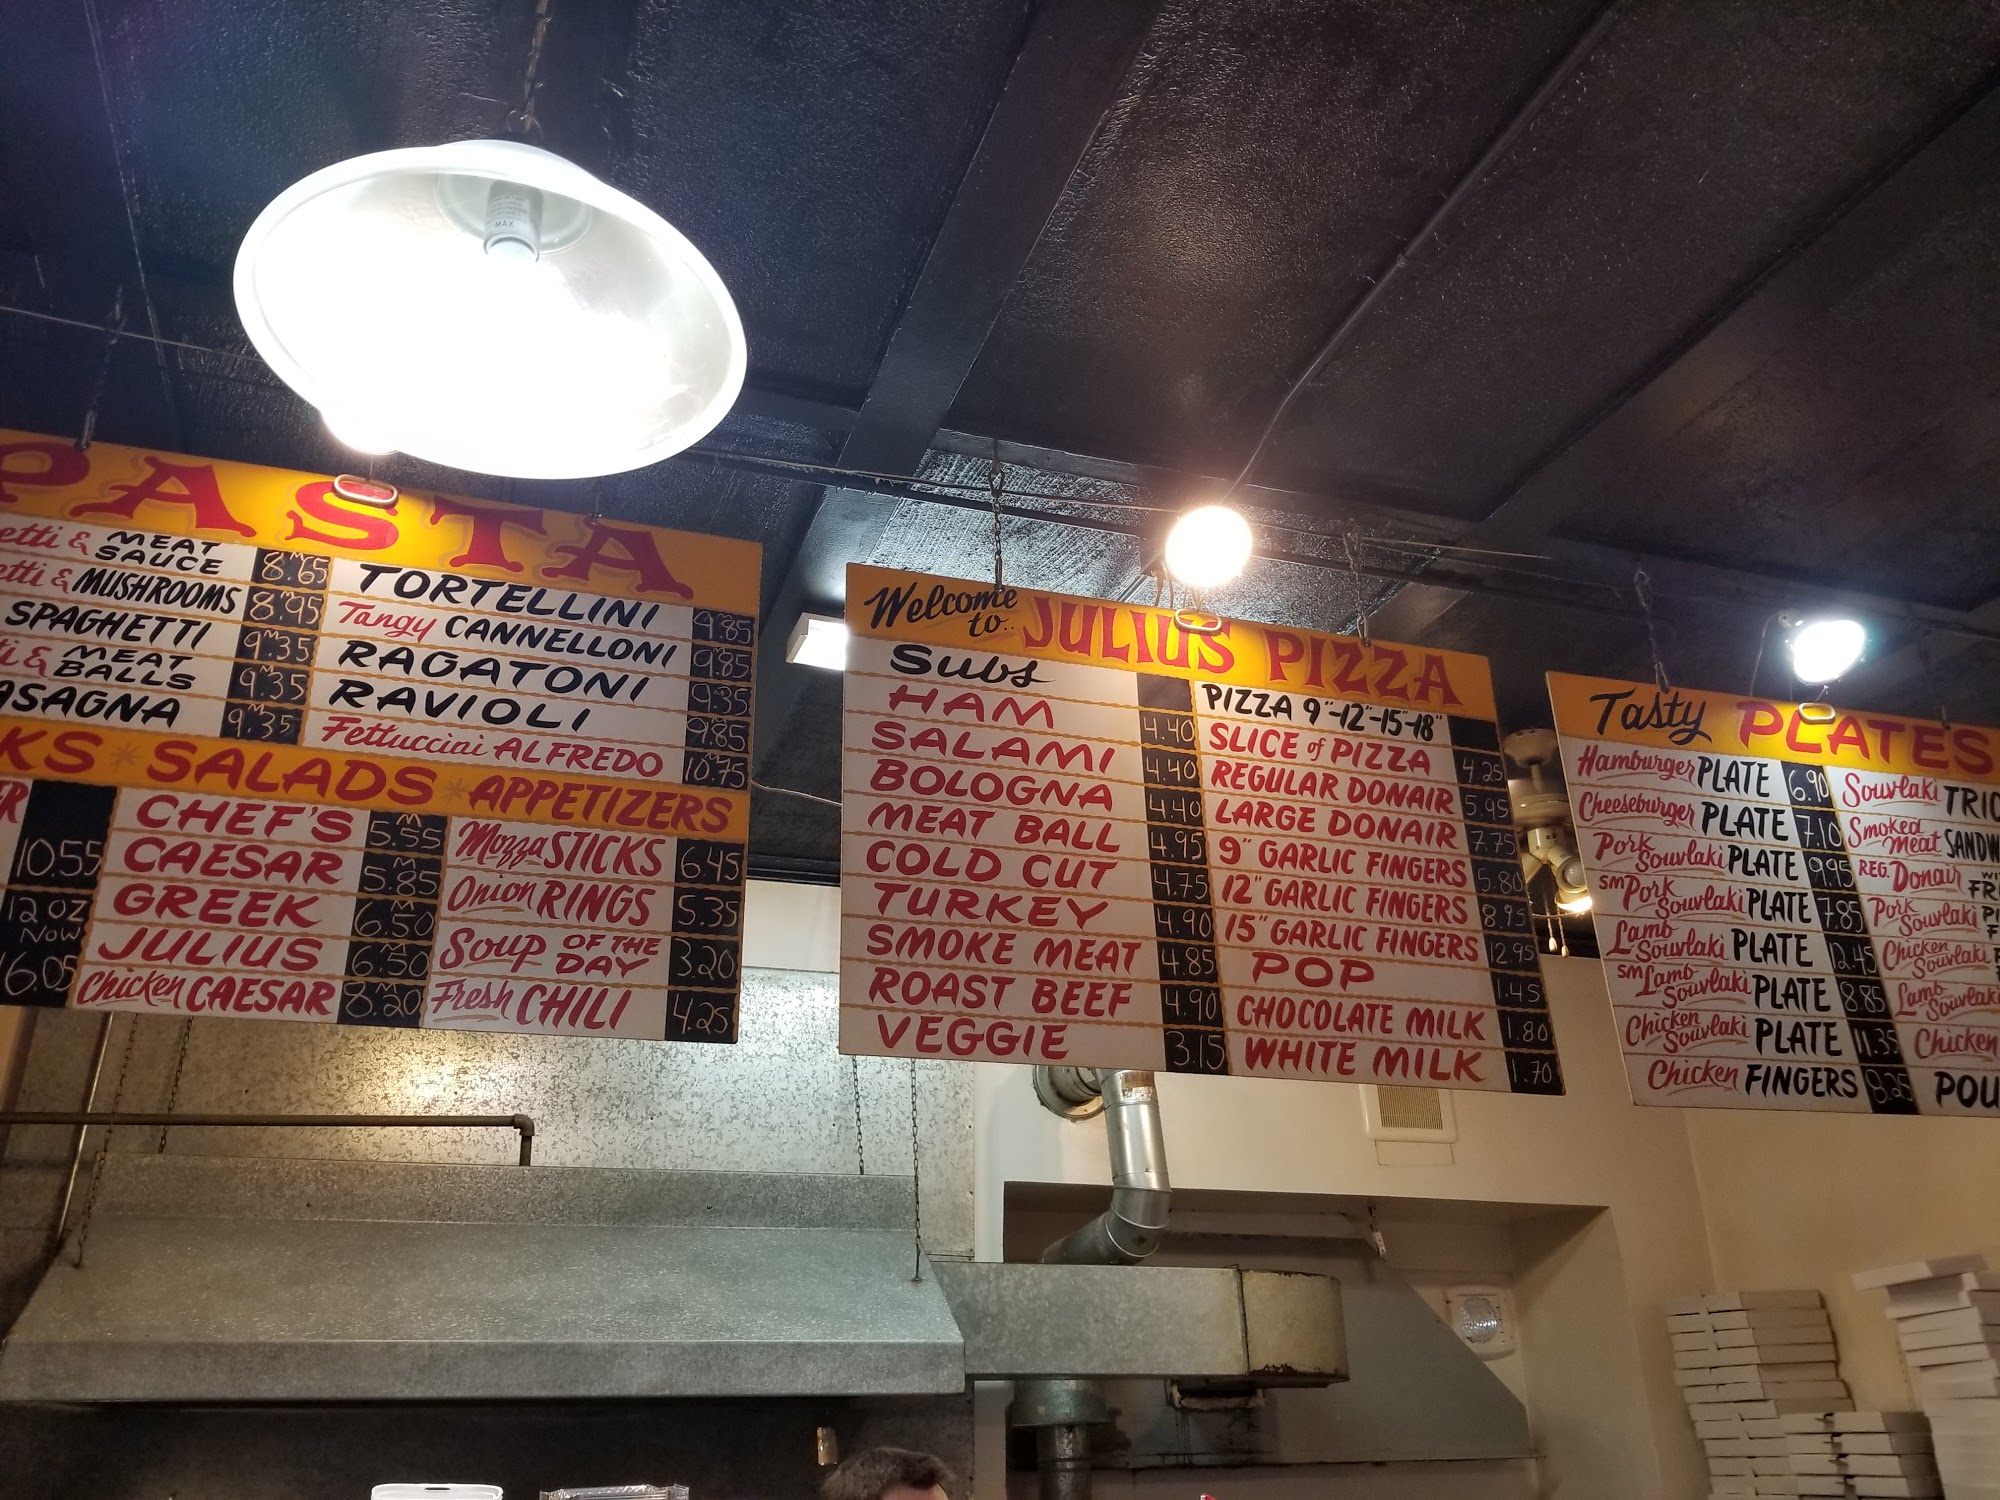 MAX
PASTA
etti & MEAT SAUCE 8.65
etti & MUSHROOMS 8.95
SPAGHETTI 9.35
ti & MEAT BALLS 9.35
ASAGNA 9.35
TORTELLINI 9.85
Tangy CANNELLONI 9.85
RAGATONI 9.35
RAVIOLI 9.85
Fettuccini ALFREDO 10.75
KS * SALADS * APPETIZERS
ER
10.55
12 OZ
NOW
16.05
CHEF'S 5.55
CAESAR 5.85
GREEK 6.50
JULIUS 6.50
Chicken CAESAR 8.20
Mozza STICKS 6.45
Onion RINGS 5.35
Soup OF THE DAY 3.20
Fresh CHILI 4.25
Welcome to.. JULIUS PIZZA
Subs
HAM 4.40
SALAMI 4.40
BOLOGNA 4.40
MEAT BALL 4.95
COLD CUT 4.75
TURKEY 4.90
SMOKE MEAT 4.85
ROAST BEEF 4.90
VEGGIE 3.15
PIZZA 9"-12"-15"-18"
SLICE of PIZZA 4.25
REGULAR DONAIR 5.95
LARGE DONAIR 7.75
9" GARLIC FINGERS 5.80
12" GARLIC FINGERS 8.95
15" GARLIC FINGERS 12.95
POP 1.45
CHOCOLATE MILK 1.80
WHITE MILK 1.70
Tasty PLATES
Hamburger PLATE 6.90
Cheeseburger PLATE 7.10
Pork Souvlaki PLATE 9.95
SM Pork Souvlaki PLATE 7.85
Lamb Souvlaki PLATE 12.45
SM Lamb Souvlaki PLATE 8.85
Chicken Souvlaki PLATE 11.35
Chicken FINGERS 8.25
Souvlaki TRIO
Smoked meat SANDW
REG. Donair WI FR
Pork Souvlaki PI F
Chicken Souvlaki P
Lamb Souvlaki
Chicken
POU